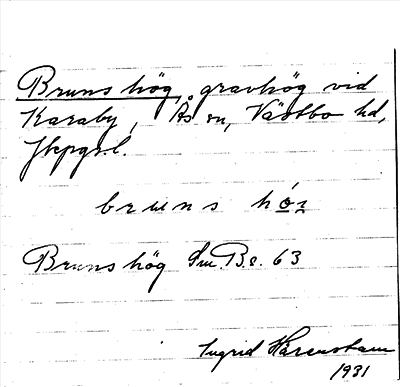 Bruns hög, gravhög vid
Karaby, Ås sn, Västbo hd,
Jkpgs l.
bruns hóꝛ
Bruns hög Sm. Be. 63
Ingrid Härenstam
1931